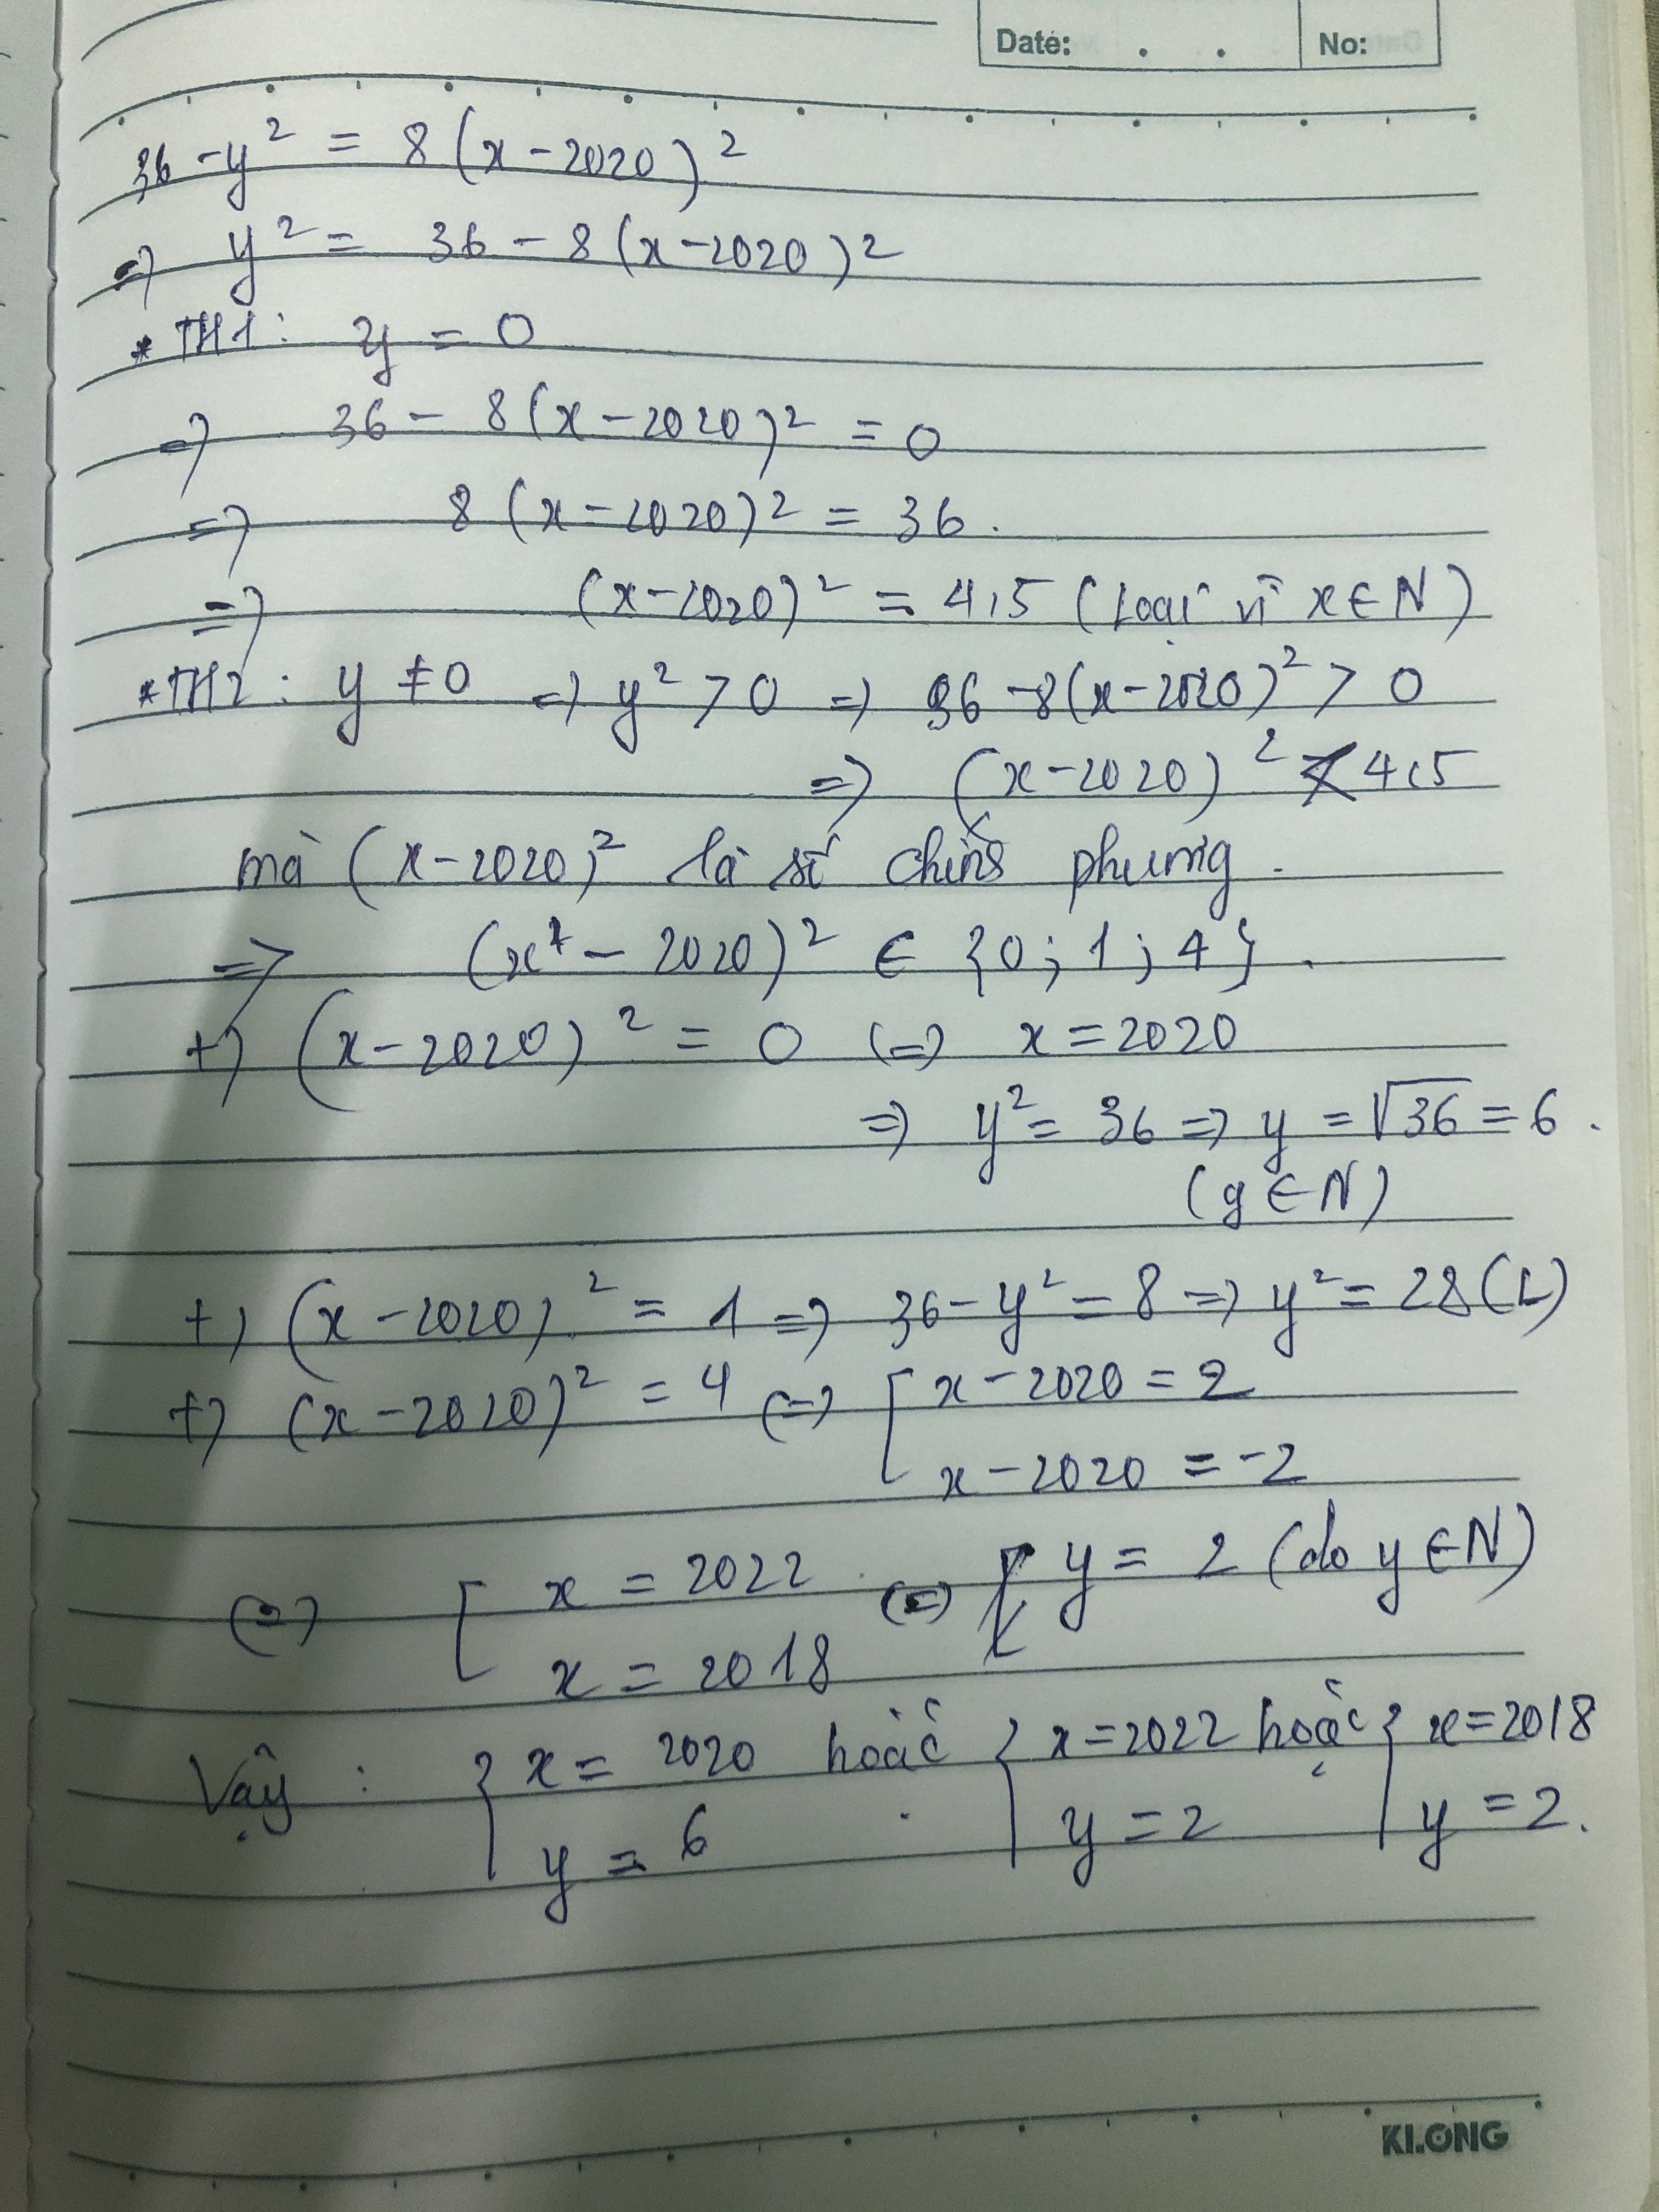 Date: . . No:
36 - y² = 8(x - 2020)²
=> y² = 36 - 8(x - 2020)²
* TH1: y = 0
=> 36 - 8(x - 2020)² = 0
=> 8(x - 2020)² = 36.
=> (x - 2020)² = 4,5 (Loại vì x ∈ N)
* TH2: y ≠ 0 => y² > 0 => 36 - 8(x - 2020)² > 0
=> (x - 2020)² < 4,5
mà (x - 2020)² là số chính phương.
=> (x - 2020)² ∈ {0; 1; 4}.
+) (x - 2020)² = 0 (=) x = 2020
=> y² = 36 => y = √36 = 6.
(y ∈ N)
+) (x - 2020)² = 1 => 36 - y² = 8 => y² = 28 (L)
+) (x - 2020)² = 4 (=) [ x - 2020 = 2
x - 2020 = -2
(=) [ x = 2022 (=) [ y = 2 (do y ∈ N)
x = 2018
Vậy: { x = 2020 hoặc { x = 2022 hoặc { x = 2018
y = 6 y = 2 y = 2.
KLONG